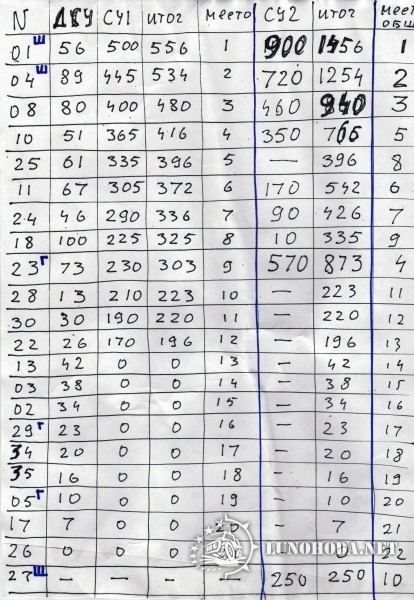 N ДКУ СУ1 ИТОГ МЕСТО СУ2 ИТОГ МЕСТО ОБЩ
01Ш 56 500 556 1 900 1456 1
04Ш 89 445 534 2 720 1254 2
08 80 400 480 3 460 940 3
10 51 365 416 4 350 766 5
25 61 335 396 5 — 396 8
11 67 305 372 6 170 542 6
24 46 290 336 7 90 426 7
18 100 225 325 8 10 335 9
23Г 73 230 303 9 570 873 4
28 13 210 223 10 — 223 11
30 30 190 220 11 — 220 12
22 26 170 196 12 — 196 13
13 42 0 0 13 — 42 14
03 38 0 0 14 — 38 15
02 34 0 0 15 — 34 16
29Г 23 0 0 16 — 23 17
34 20 0 0 17 — 20 18
35 16 0 0 18 — 16 19
05Г 10 0 0 19 — 10 20
17 7 0 0 20 — 7 21
26 0 0 0 0 22
LUNOHODA.NET
27Ш — — — — 250 250 10